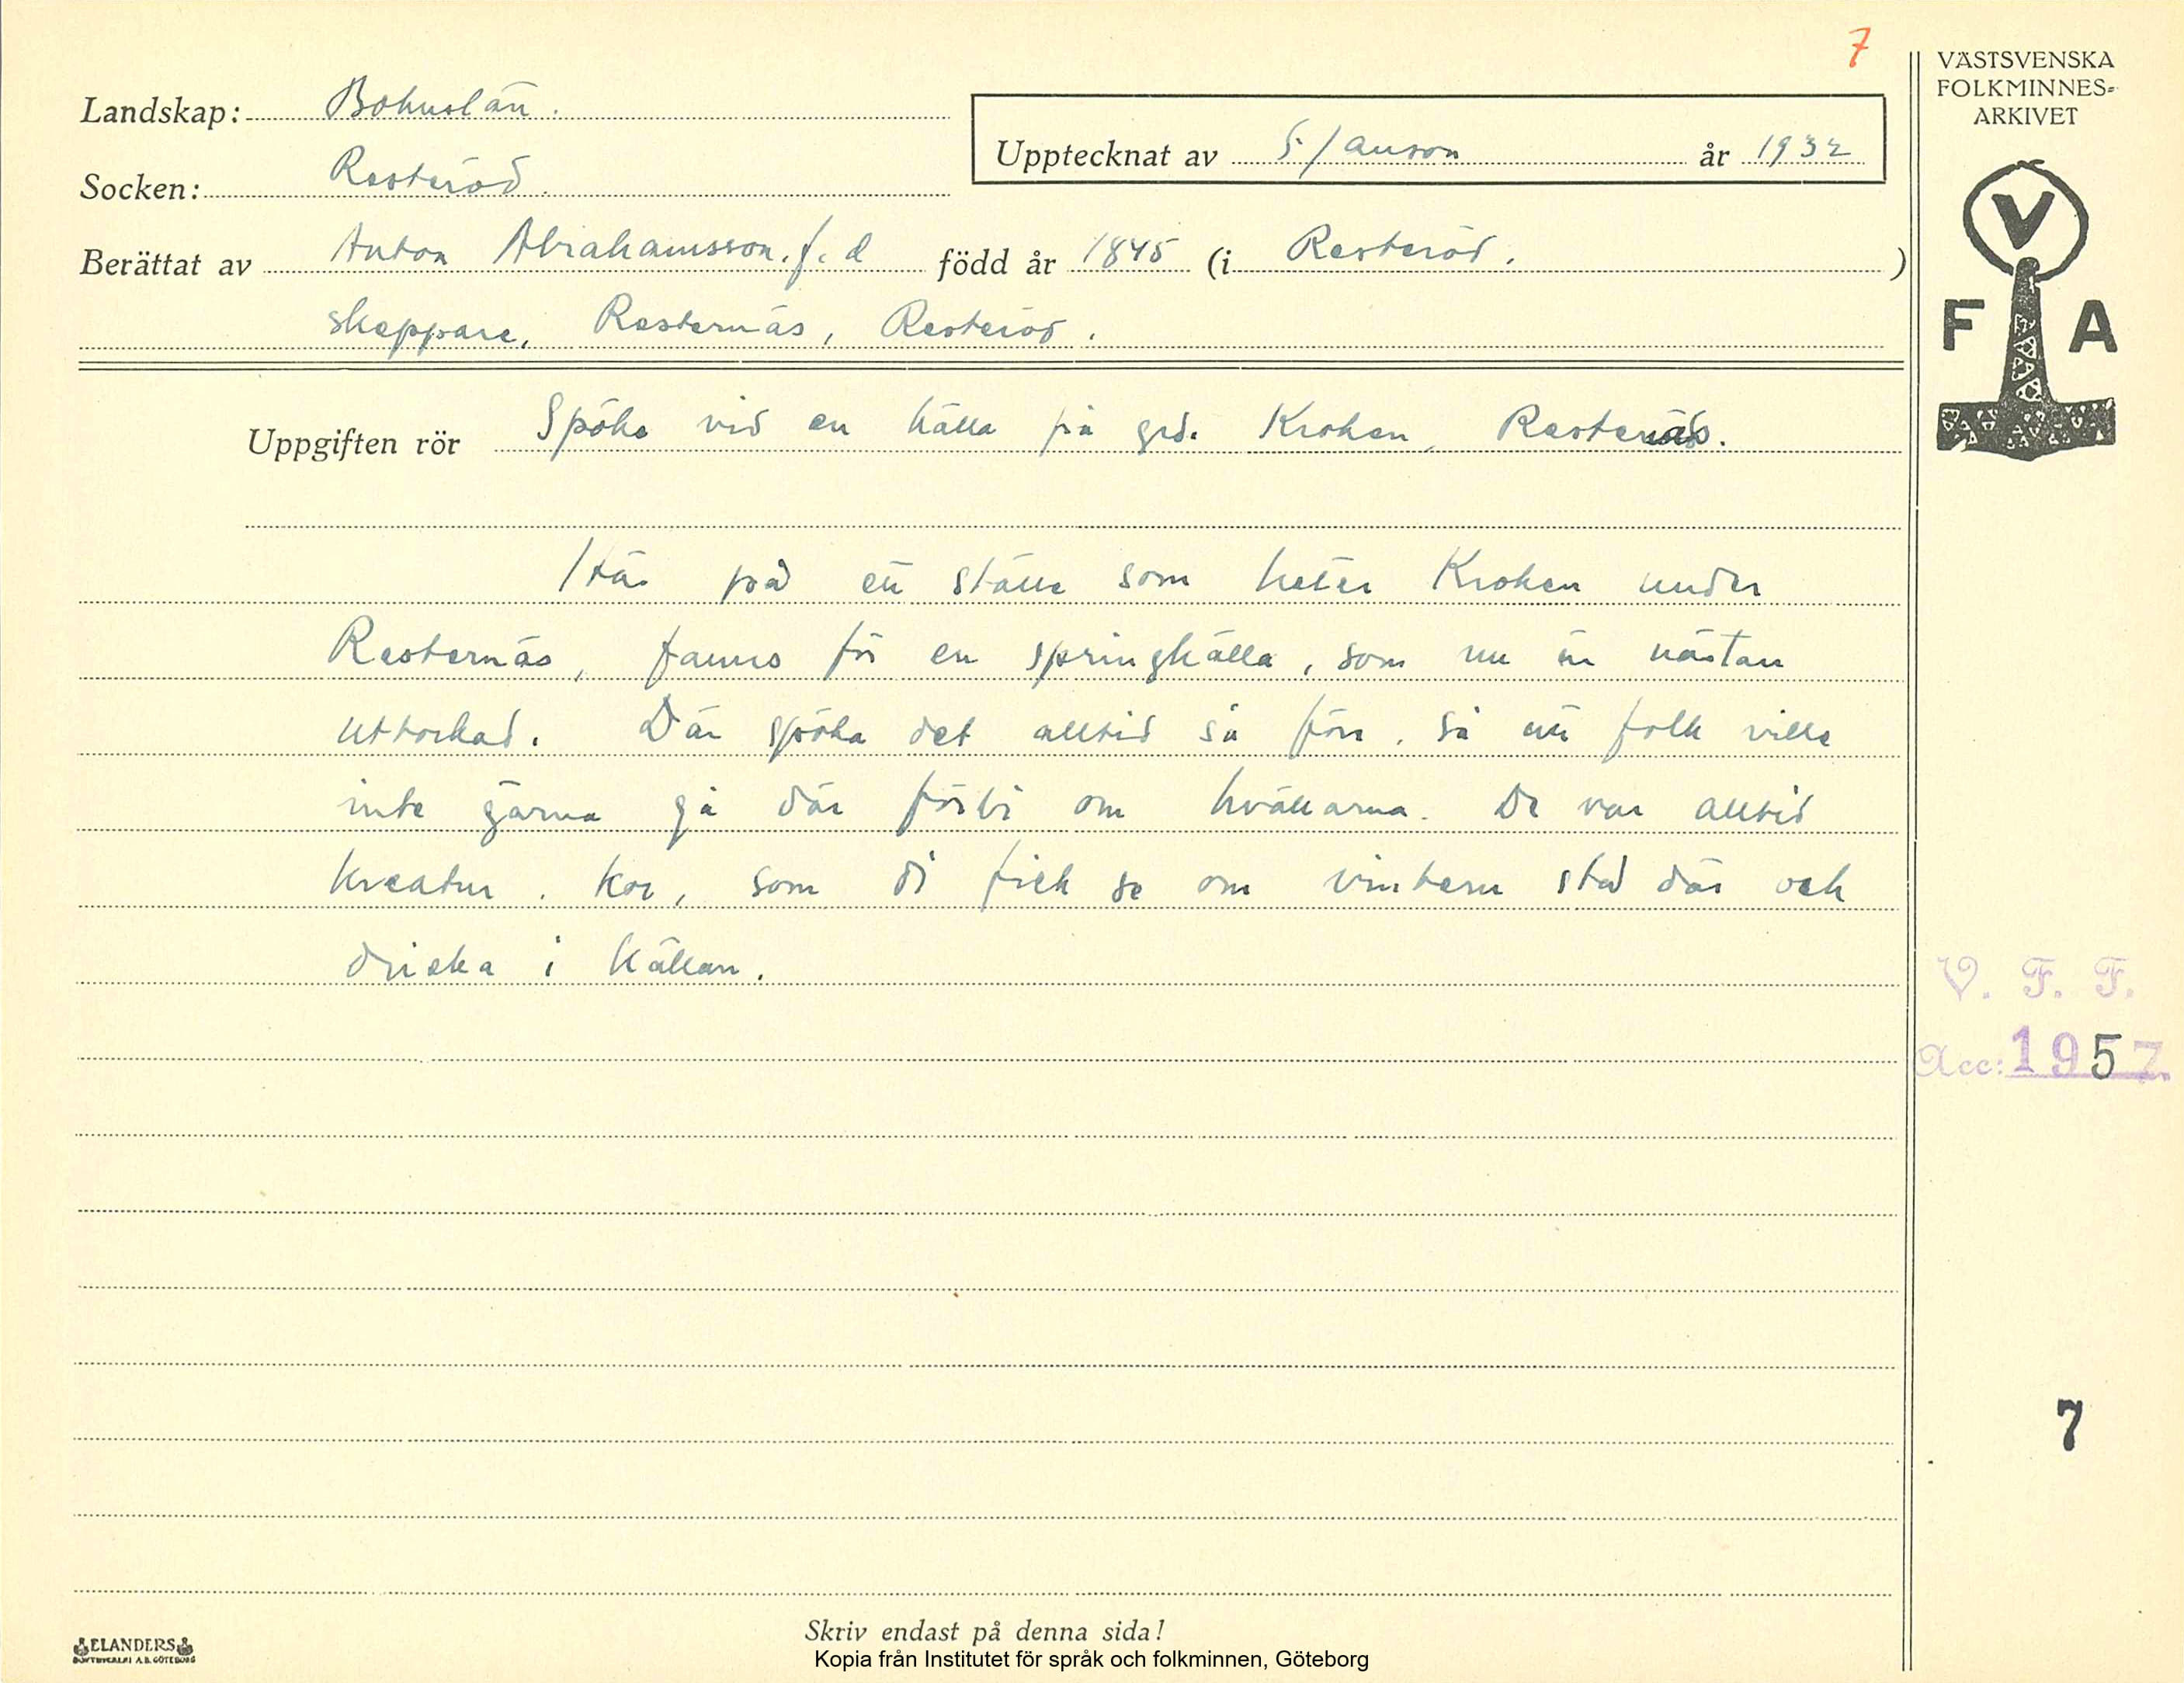 7
VÄSTSVENSKA
FOLKMINNES-
ARKIVET
Landskap: Bohuslän.
Upptecknat av S. Janson år 1932
Socken: Resteröd.
Berättat av Anton Abrahamsson, f. d född år 1845 (i Resteröd.)
skeppare, Resternäs, Resteröd.
V
F A
Uppgiften rör Spöke vid en källa på grd. Kroken, Resternäs.
Här på ett ställe som heter Kroken under
Resternäs, fanns för en springkälla, som nu är nästan
uttorkad. Där spöka det alltid så förr, så att folk ville
inte gärna gå där förbi om kvällarna. De var alltid
kreatur, kor, som di fick se om vintern stå där och
dricka i källan.
V. F. F.
Acc: 1957.
7
Skriv endast på denna sida!
ELANDERS
BOKTRYCKERI A.B. GÖTEBORG
Kopia från Institutet för språk och folkminnen, Göteborg